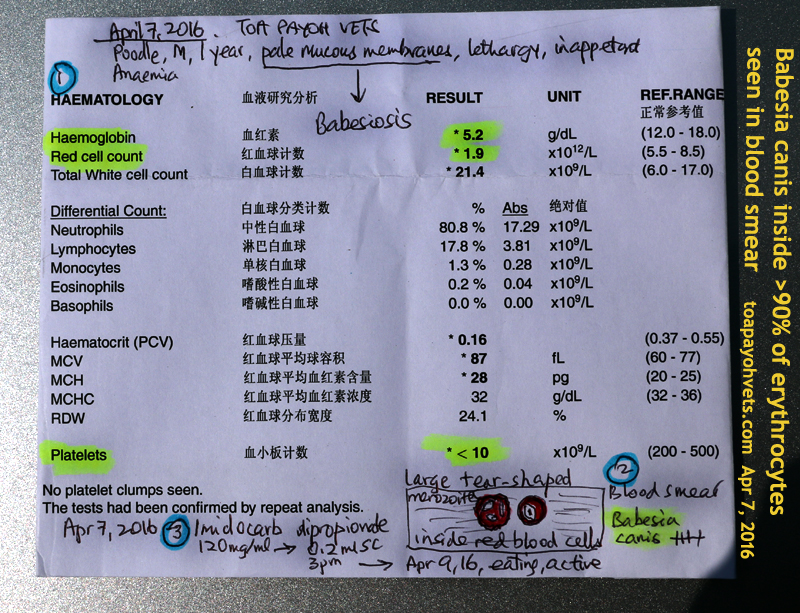 April 7, 2016. TOA PAYOH VETS
Poodle, M, 1 year, pale mucous membranes, lethargy, inappetent
Anaemia
1
Babesiosis
HAEMATOLOGY 血液研究分析 RESULT UNIT REF.RANGE
正常参考值
Haemoglobin 血红素 * 5.2 g/dL (12.0 - 18.0)
Red cell count 红血球计数 * 1.9 x10¹²/L (5.5 - 8.5)
Total White cell count 白血球计数 * 21.4 x10⁹/L (6.0 - 17.0)
Differential Count: 白血球分类计数 % Abs 绝对值
Neutrophils 中性白血球 80.8 % 17.29 x10⁹/L
Lymphocytes 淋巴白血球 17.8 % 3.81 x10⁹/L
Monocytes 单核白血球 1.3 % 0.28 x10⁹/L
Eosinophils 嗜酸性白血球 0.2 % 0.04 x10⁹/L
Basophils 嗜碱性白血球 0.0 % 0.00 x10⁹/L
Haematocrit (PCV) 红血球压量 * 0.16 (0.37 - 0.55)
MCV 红血球平均球容积 * 87 fL (60 - 77)
MCH 红血球平均血红素含量 * 28 pg (20 - 25)
MCHC 红血球平均血红素浓度 32 g/dL (32 - 36)
RDW 红血球分布宽度 24.1 %
Platelets 血小板计数 * < 10 x10⁹/L (200 - 500)
No platelet clumps seen.
The tests had been confirmed by repeat analysis.
Large tear-shaped
merozoites
inside red blood cells
2
Blood smear
Babesia
canis ++++
Apr 7, 2016 3 Imidocarb dipropionate
120mg/ml → 0.2 ml SC
3pm → Apr 9, 16, eating, active
Babesia canis inside >90% of erythrocytes
seen in blood smear toapayohvets.com Apr 7, 2016